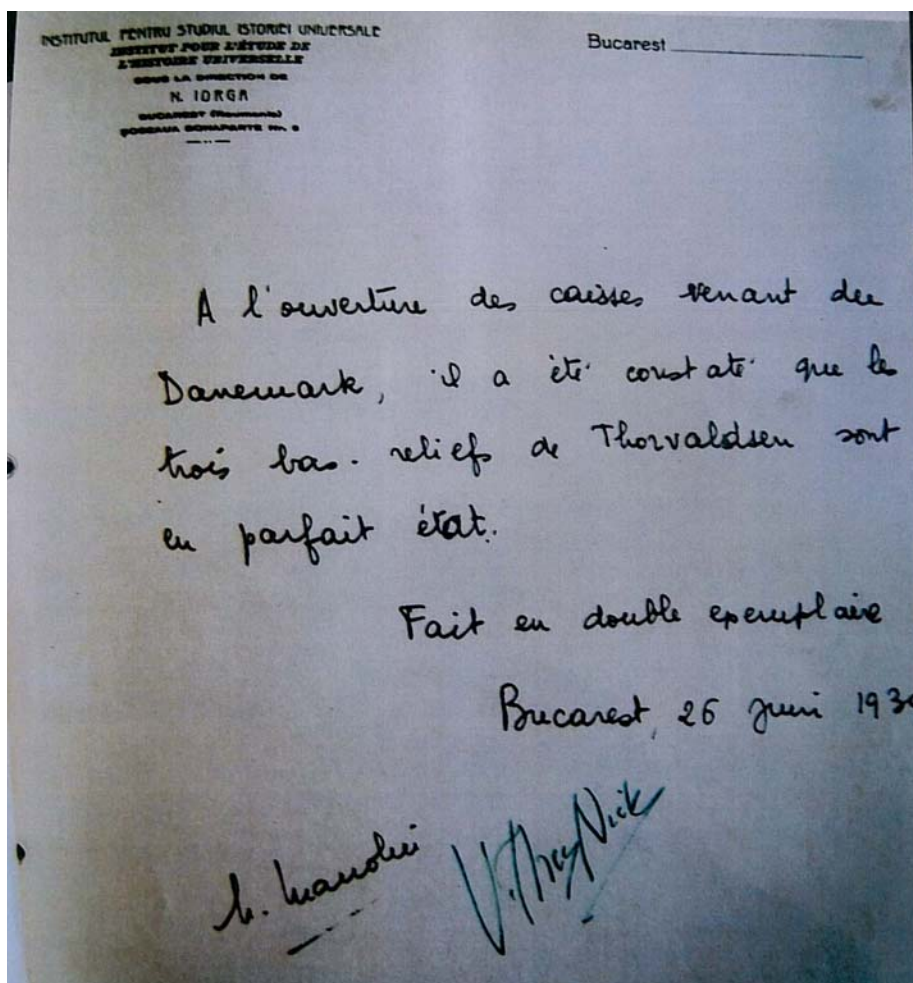 INSTITUTUL PENTRU STUDIUL ISTORIEI UNIVERSALE
INSTITUT POUR L'ÉTUDE DE
L'HISTOIRE UNIVERSELLE
SOUS LA DIRECTION DE
N. IORGA
BUCAREST (Roumanie)
ȘOSEAUA BONAPARTE No. 6
Bucarest
A l'ouverture des caisses venant du
Danemark, il a été constaté que les
trois bas-reliefs de Thorvaldsen sont
en parfait état.
Fait en double exemplaire
Bucarest, 26 juin 193